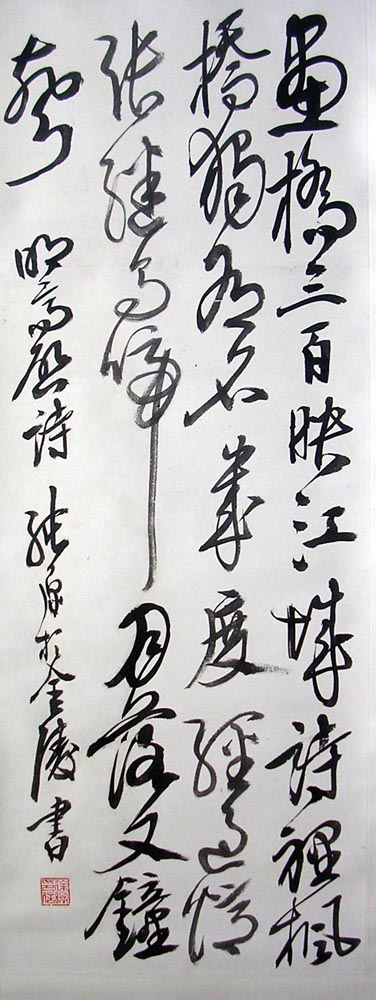 畫橋三百映江城詩裡楓
橋獨有名幾度經過憶
張繼烏啼月落又鐘
聲 明高啟詩 原於金陵書